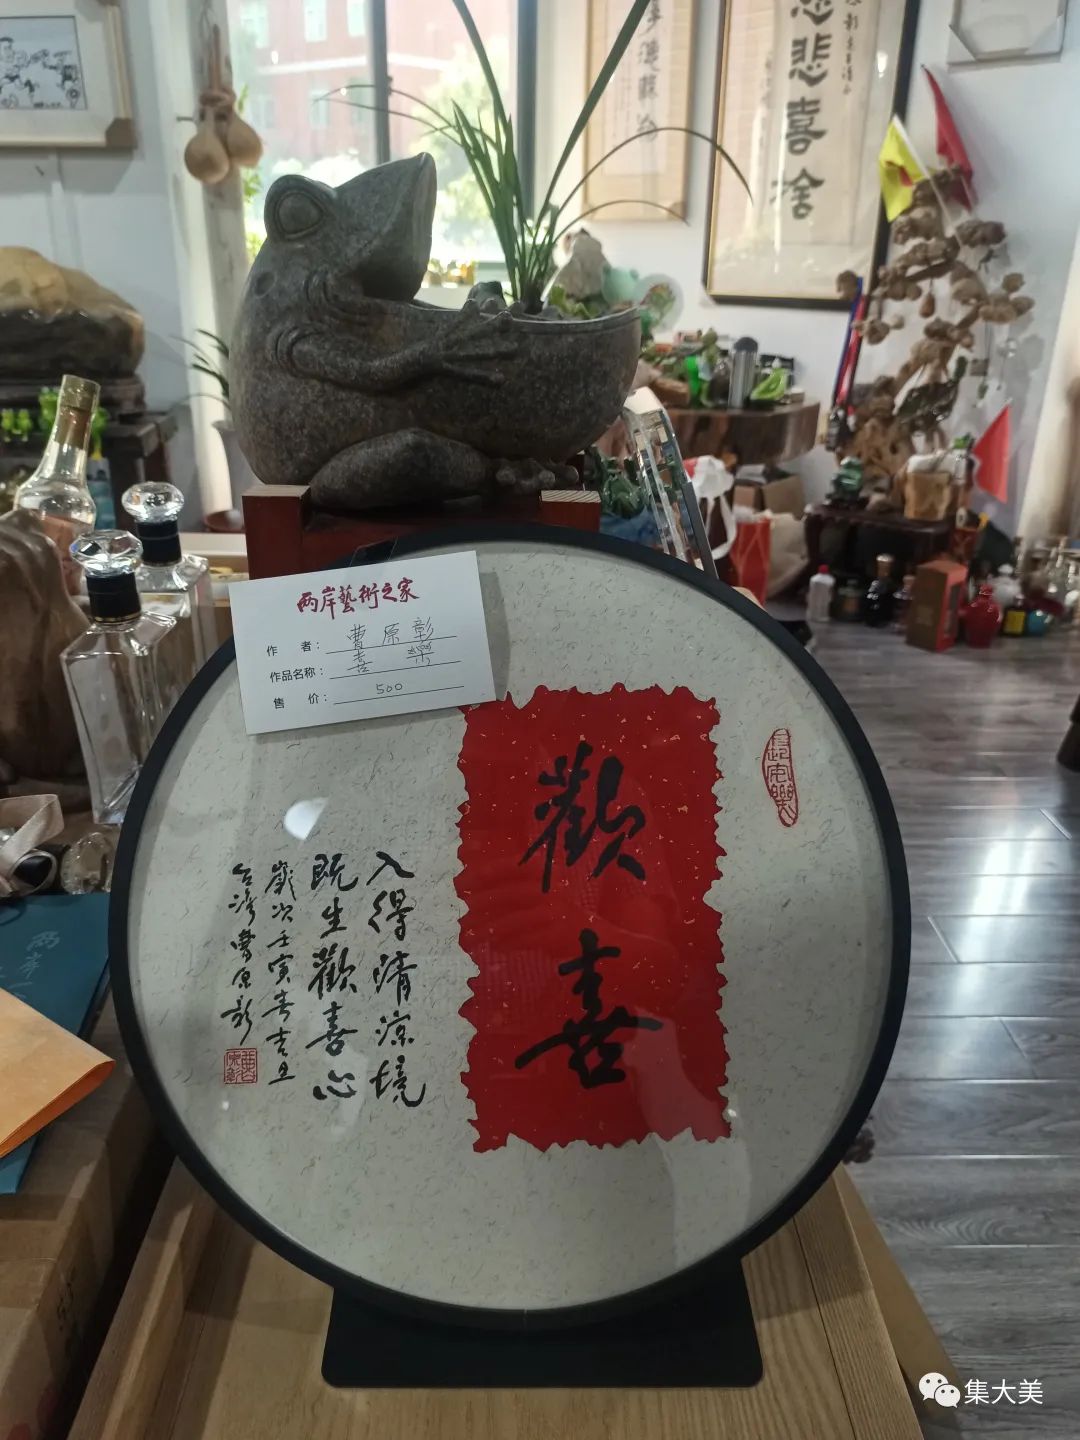 悲喜捨
两岸藝術之家
作　者：曹原彰
作品名称：喜樂
售　价：500
歡喜
入得清凉境
既生歡喜心
歲次壬寅春吉旦
台灣曹原彰
集大美